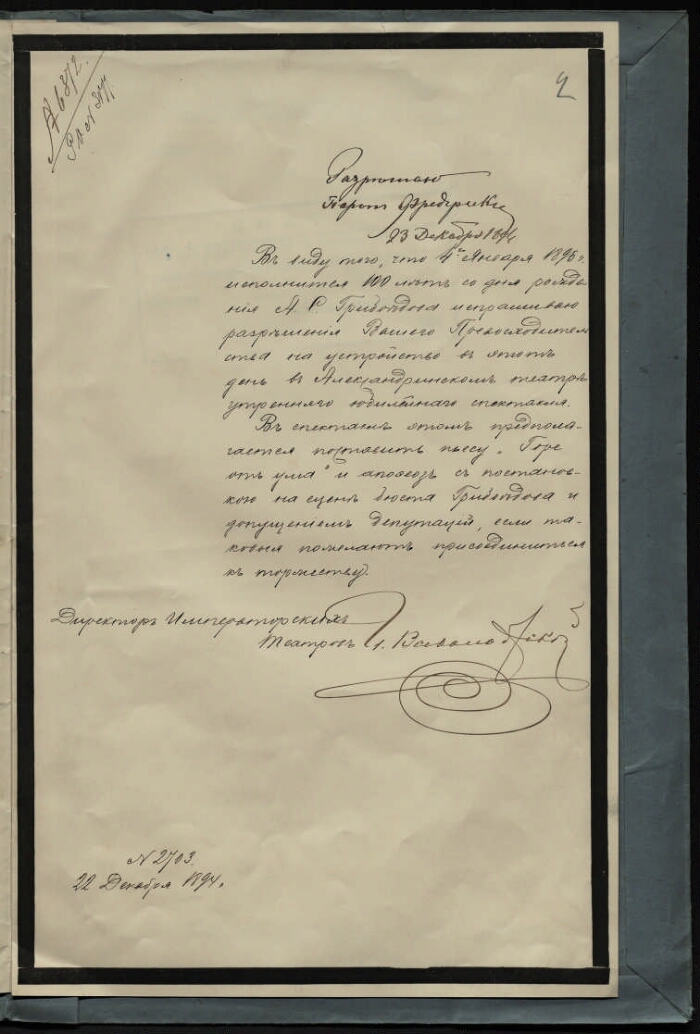 № 6372.
2
Разрѣшаю
Баронъ Фредериксъ
23 Декабря 1894
Въ виду того, что 4го Января 1895 г.
исполнится 100 лѣтъ со дня рожде-
нія А. С. Грибоѣдова испрашиваю
разрѣшенія Вашего Превосходитель
ства на устройство въ этотъ
день въ Александринскомъ театрѣ
утренняго юбилейнаго спектакля.
Въ спектаклѣ этомъ предпола-
гается поставить пьесу "Горе
отъ ума" и апоѳеозъ съ постанов-
кою на сценѣ бюста Грибоѣдова и
допущеніемъ депутацій, если та-
ковыя пожелаютъ присоединиться
къ торжеству.
Директоръ Императорскихъ
Театровъ И. Всеволожской
N 2703.
22 Декабря 1894.